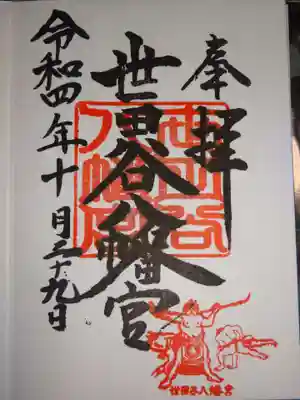 奉拝
世田谷八幡宮
令和四年十月二十九日
世田谷八幡宮
世田谷八幡宮